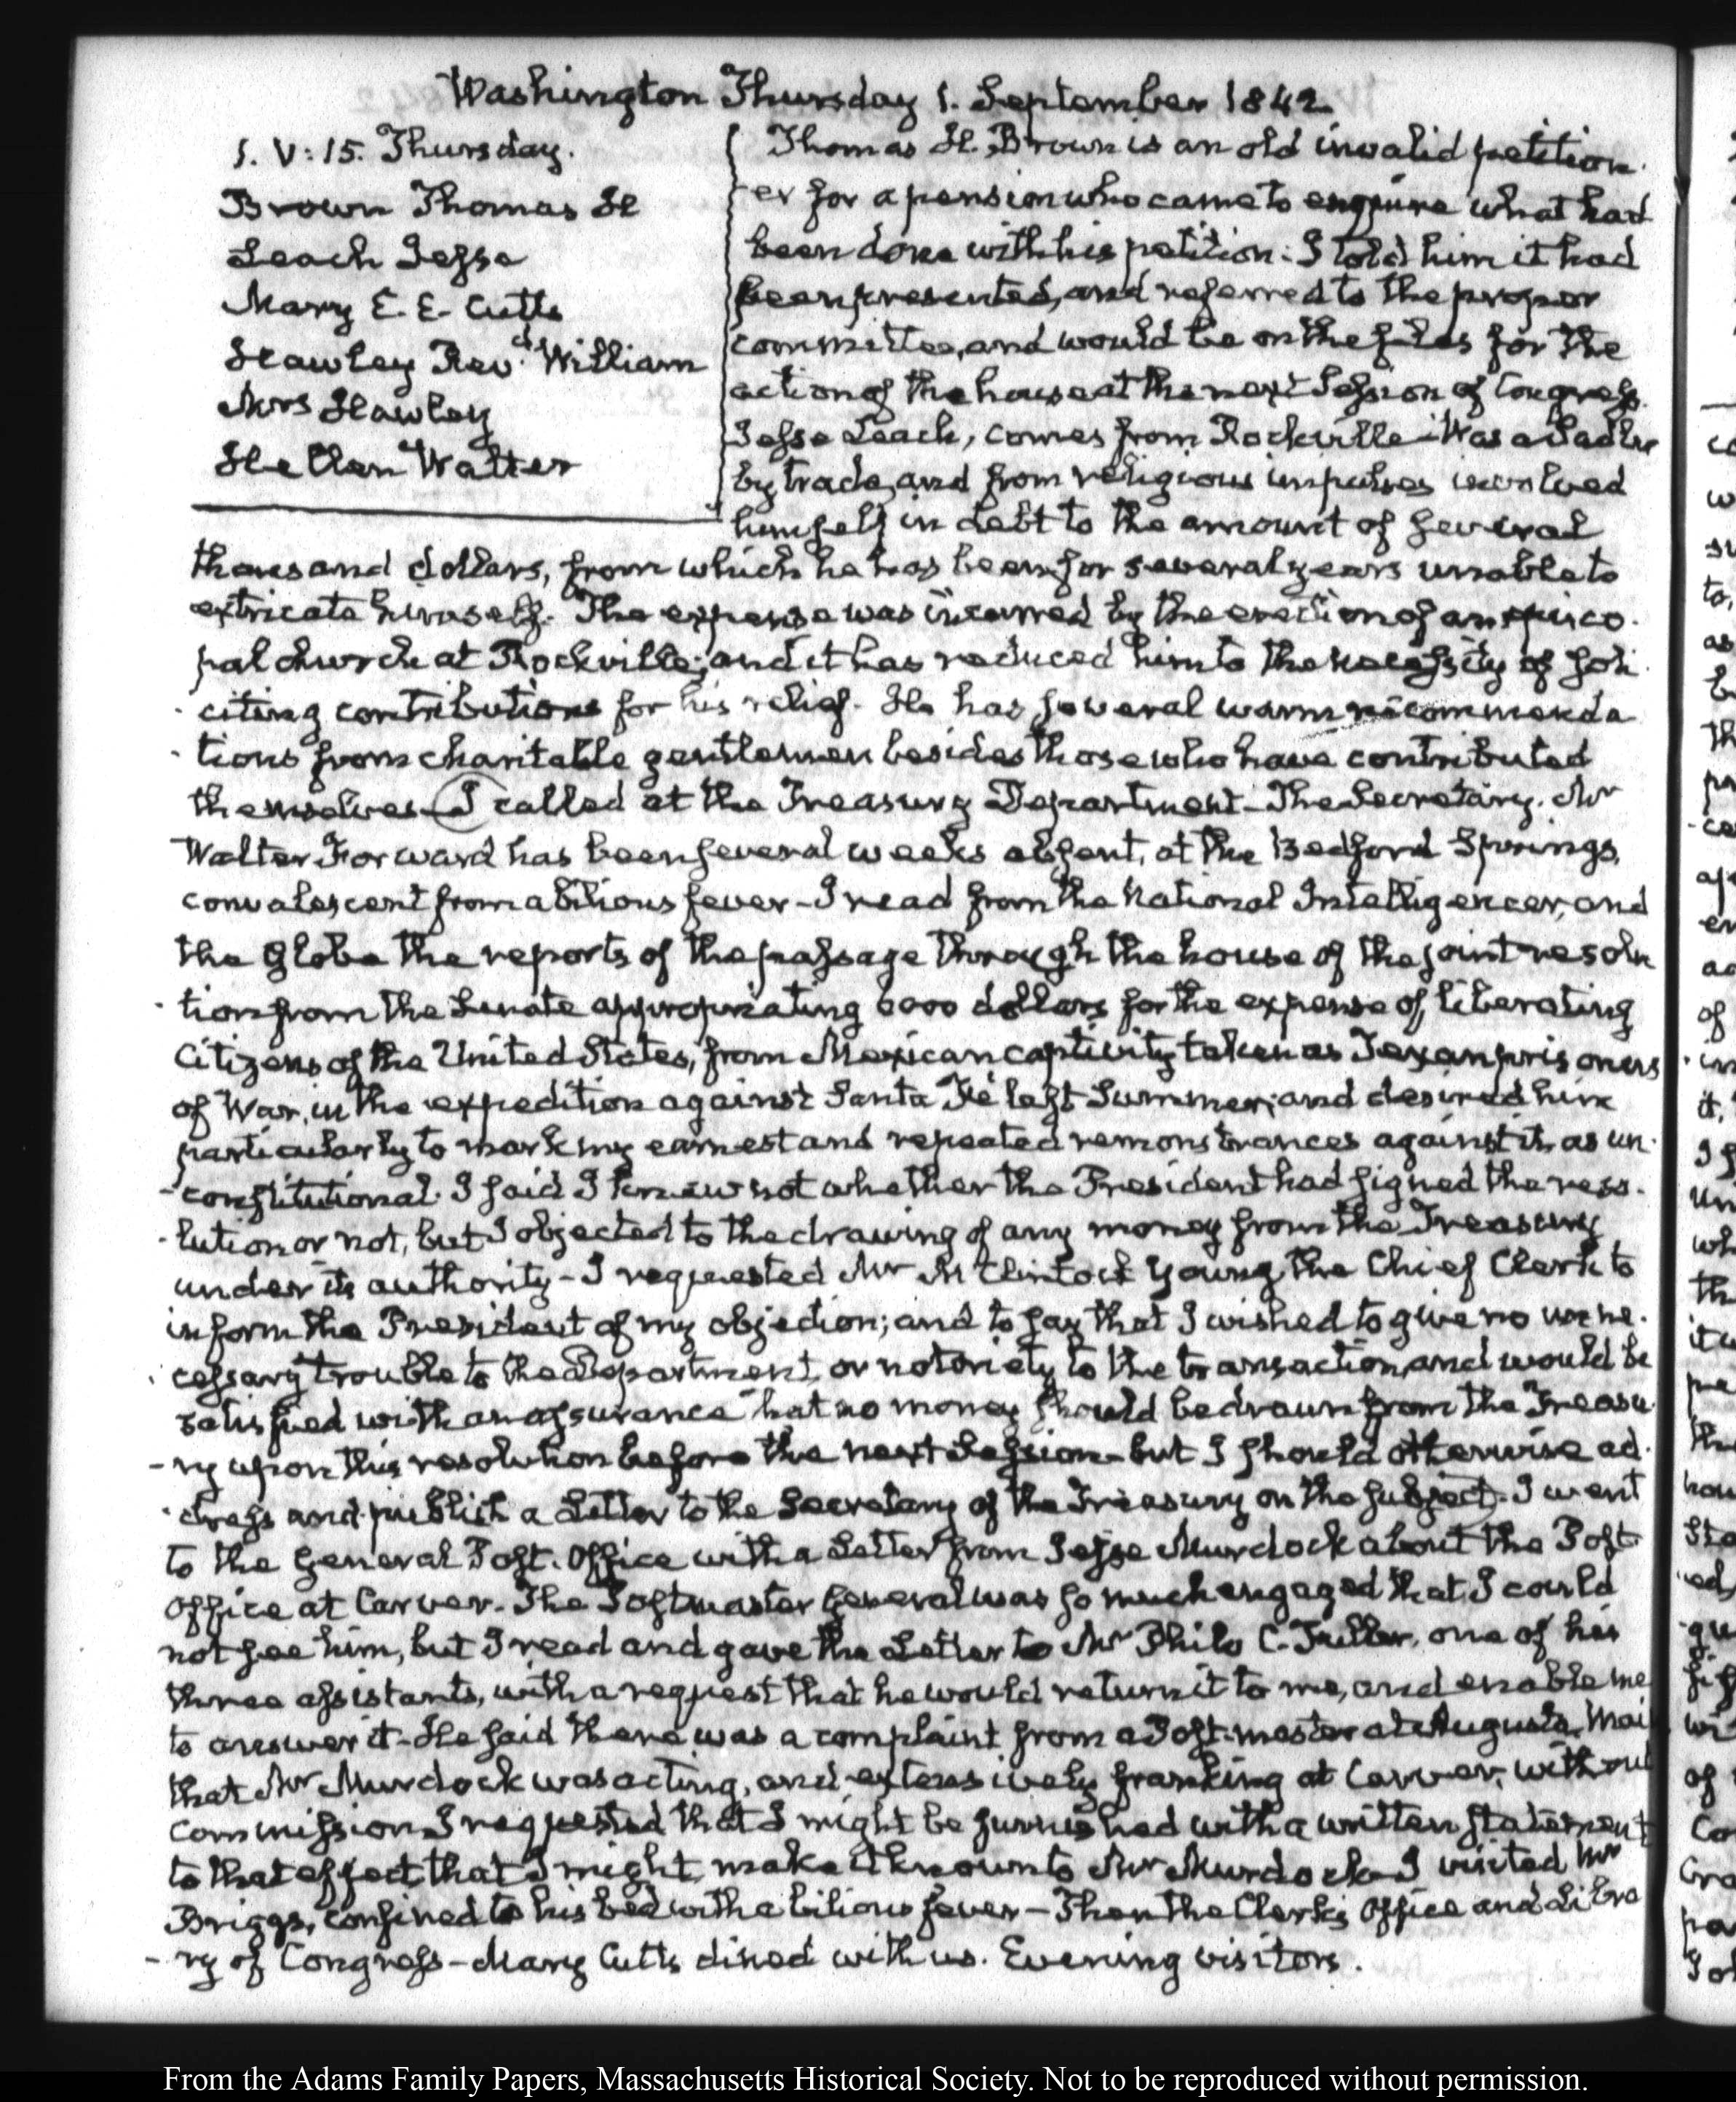 Washington Thursday 1. September 1842.
1. V: 15. Thursday.
Brown Thomas H
Leach Jesse
Mary E. E. Cutts
Hawley Revd. William
Mrs Hawley
Hellen Walter
Thomas H. Brown is an old invalid petition-
er for a pension who came to enquire what had
been done with his petition. I told him it had
been presented, and referred to the proper
committee, and would be on the files for the
action of the house at the next Session of Congress.
Jesse Leach, comes from Rockville - Was a Sadler
by trade, and from religious impulses involved
himself in debt to the amount of several
thousand dollars, from which he has been for several years unable to
extricate himself. The expense was incurred by the erection of an episco-
pal church at Rockville; and it has reduced him to the necessity of soli-
-citing contributions for his relief. He has several warm recommenda-
-tions from charitable gentlemen besides those who have contributed
themselves - I called at the Treasury Department - The Secretary. Mr
Walter Forward has been several weeks absent, at the Bedford Springs,
convalescent from a bilious fever - I read from the National Intelligencer, and
the Globe the reports of the passage through the house of the joint resolu-
-tion from the Senate appropriating 6000 dollars for the expense of liberating
Citizens of the United States, from Mexican captivity taken as Texan prisoners
of War, in the expedition against Santa Fé last Summer; and desired him
particularly to mark my earnest and repeated remonstrances against it as un-
-constitutional. I said I knew not whether the President had signed the reso-
-lution or not, but I objected to the drawing of any money from the Treasury
under its authority - I requested Mr McClintock Young, the Chief Clerk to
inform the President of my objection; and to say that I wished to give no unne-
-cessary trouble to the Department, or notoriety to the transaction, and would be
satisfied with an assurance that no money should be drawn from the Treasu-
-ry upon this resolution before the next Session - but I should otherwise ad-
-dress and publish a Letter to the Secretary of the Treasury on the subject. I went
to the General Post-Office with a Letter from Jesse Murdock about the Post-
Office at Carver. The Postmaster General was so much engaged that I could
not see him, but I read and gave the Letter to Mr Philo C. Fuller, one of his
three assistants, with a request that he would return it to me, and enable me
to answer it - He said there was a complaint from a Post-master at Augusta, Mai
that Mr Murdock was acting, and extensively franking at Carver, without
commission. I requested that I might be furnished with a written statement
to that effect that I might make it known to Mr Murdock - I visited Mr
Briggs, confined to his bed with a bilious fever - Then the Clerk's Office and Libra-
-ry of Congress - Mary Cutts dined with us. Evening visitors.
From the Adams Family Papers, Massachusetts Historical Society. Not to be reproduced without permission.